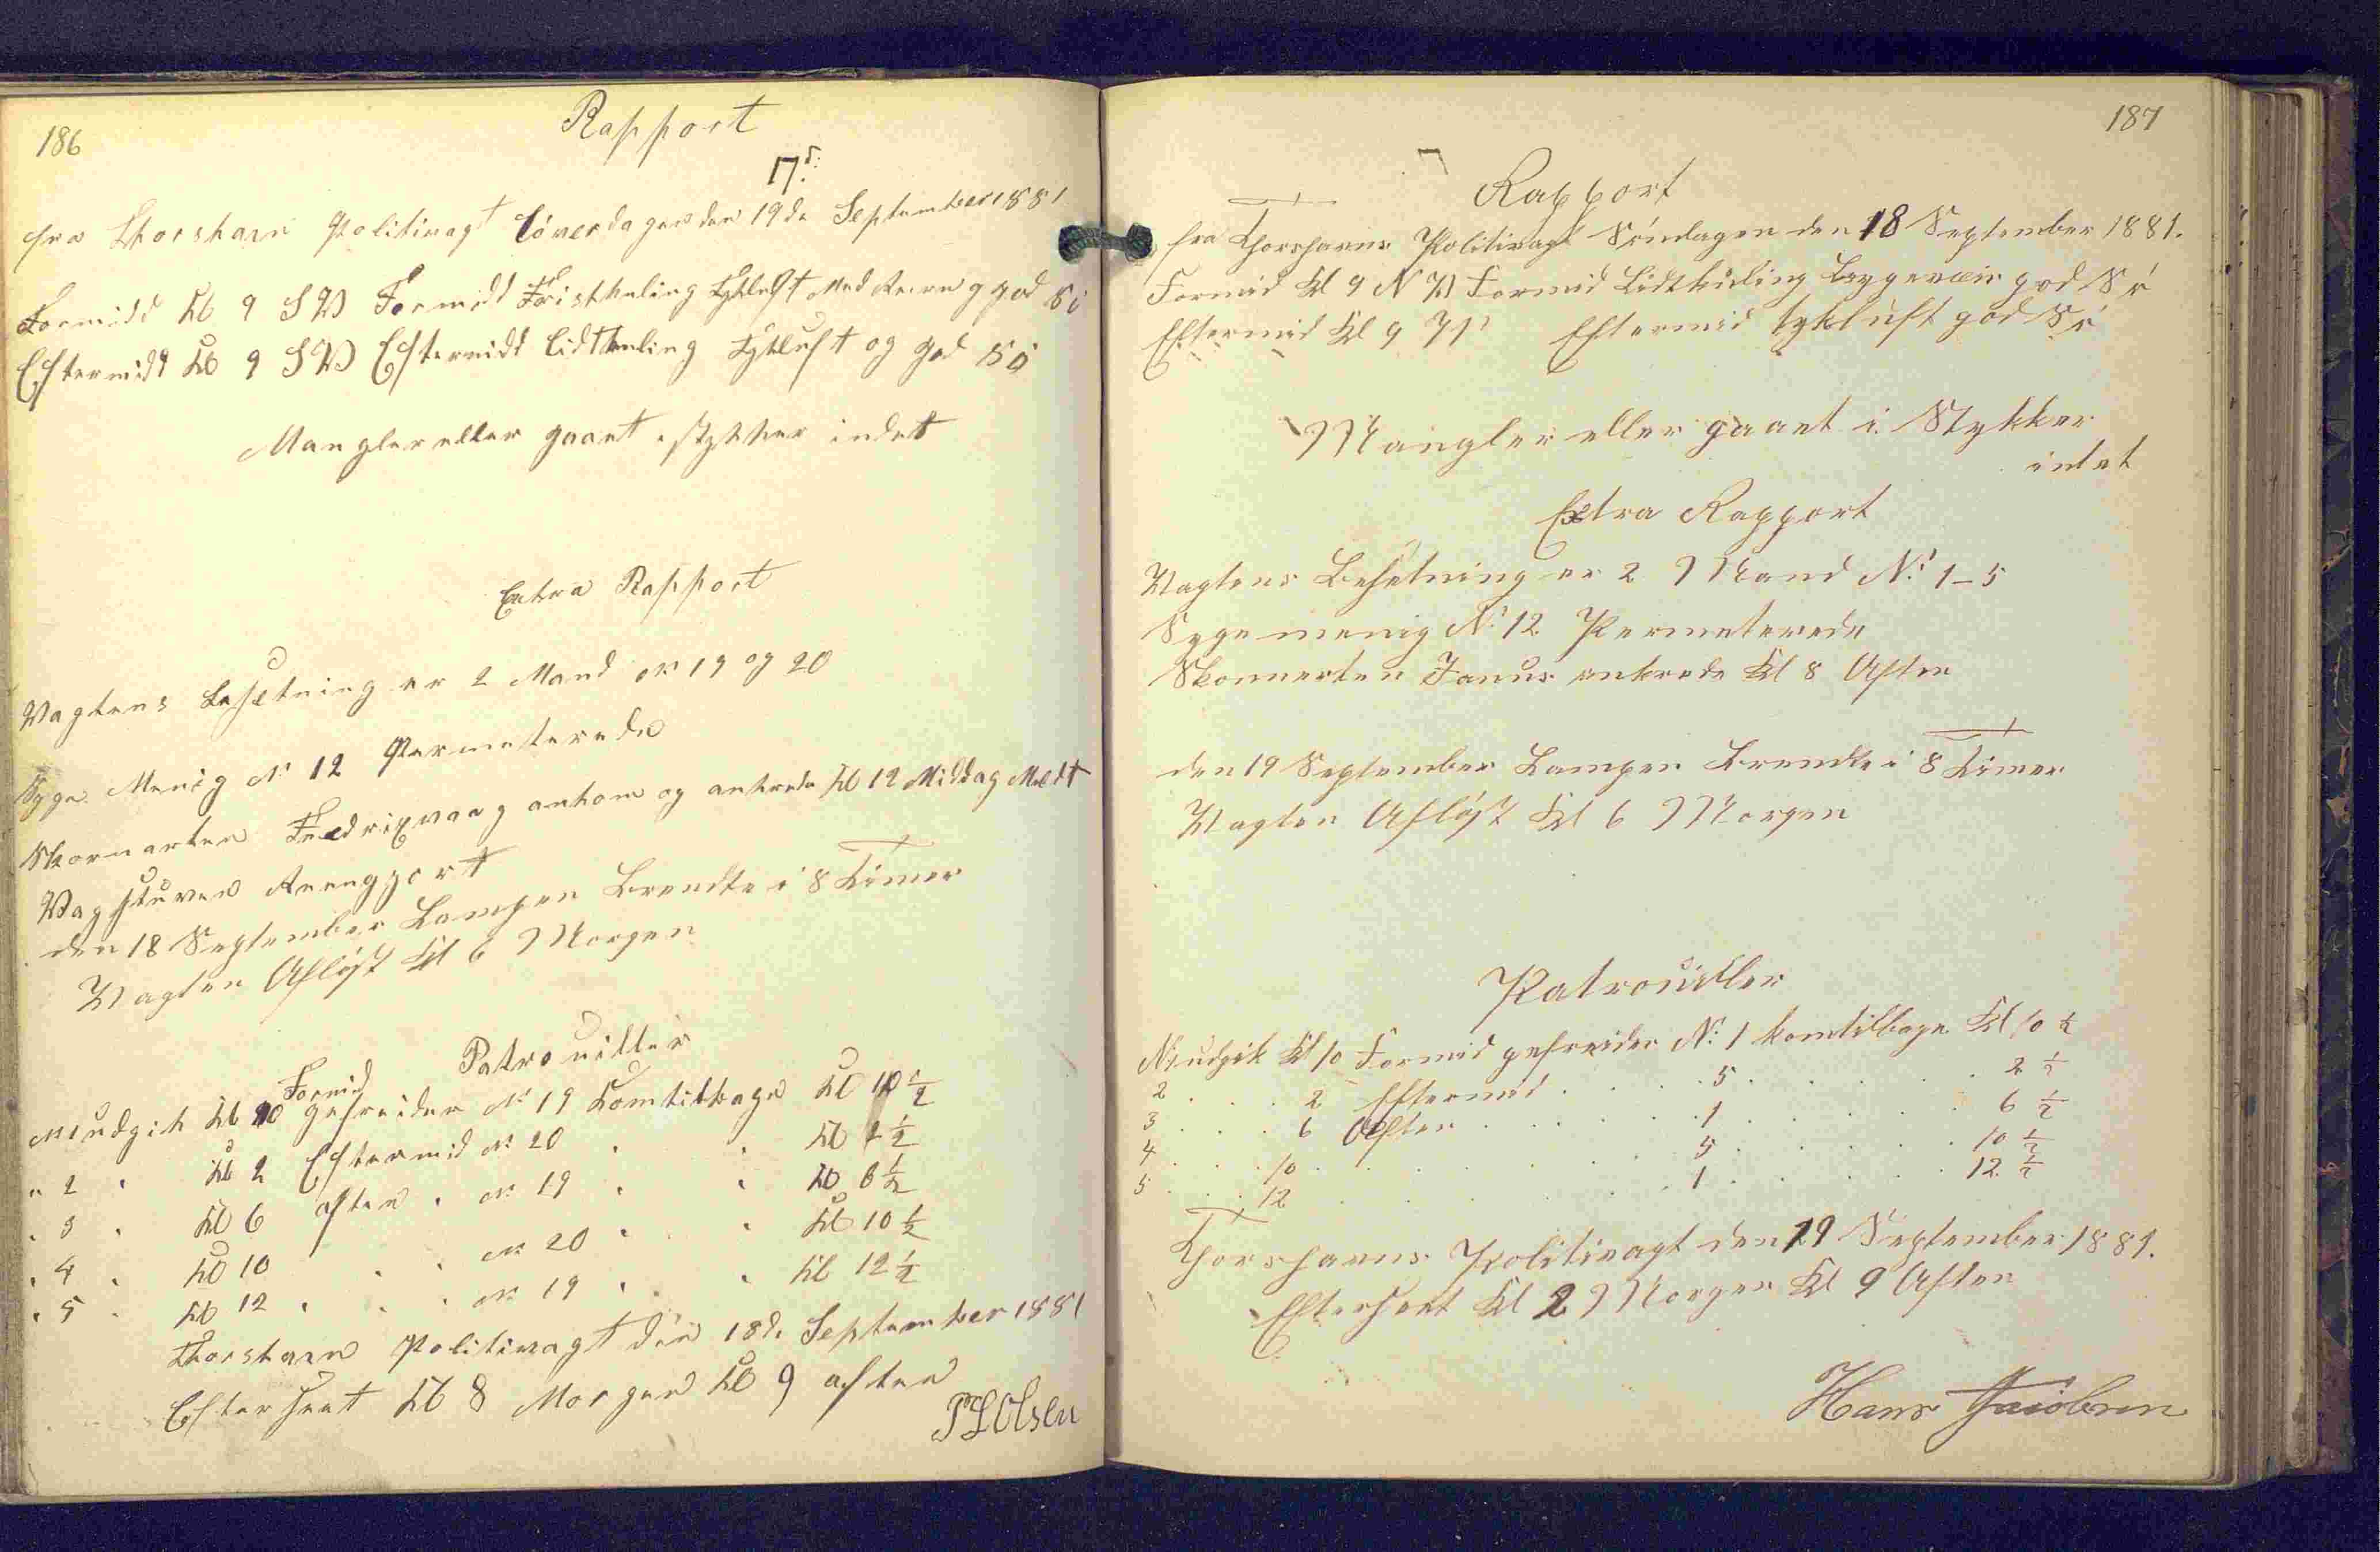 186
Rapport
17d:
fra Thorshavn Politivagt Löverdagen den 19de September 1881
Formidd Kl 9 SW Formidd Friskkuling Tykluft Med Rein og god Sö
Eftermidd Kl 9 SW Eftermidd Lidtkuling Tykluft og god Sö
Mangler eller gaaet i stykker indet
Extra Rapport
Vagtens Besetning er 2 Mand No 19 og 20
Syge Menig No 12 Permeterede
Skonnerten Fredrixvaag ankom og ankrede Kl 12 Middag Meldt
Vagstuven Reenggort
den 18 September Lampen Brendte i 8 Timer
Vagten Afløst Kl 6 Morgen
Patrouiller
Formid
No 1 udgik Kl 10 gefreider No 19 Komtilbage Kl 10 1/2
" 2 " Kl 2 Eftermid No 20 " " Kl 2 1/2
" 3 " Kl 6 aften " No 19 " " Kl 6 1/2
" 4 " Kl 10 " " No 20 " " Kl 10 1/2
" 5 " Kl 12 " " " No 19 " " Kl 12 1/2
Thorshavn Politivagt den 18de September 1881
Efterseet Kl 8 Morgen Kl 9 aften
Olsen
187
Rapport
fra Thorshavns Politivagt Söndagen den 18 September 1881.
Formid Kl 9 N W Formid Lidtkuling Bygeveir god Sö
Eftermid Kl 9 Eftermid tykluft god Sö
Mangler eller gaaet i Stykker
intet
Extra Rapport
Vagtens Besetning er 2 Mand No 1-5
Syge menig No 12. Permeterede
Skonnerten Janus ankrede Kl 8 Aften
den 19 September Lampen Brendte i 8 Timer
Vagten Afløst Kl 6 Morgen
Patrouiller
No 1 udgik Kl 10 Formid gefreider No 1 komtilbage Kl 10 1/2
2 . . . 2 Eftermid . . . . 5 . . . . . 2 1/2
3 . . . 6 Aften . . . . . 1 . . . . . 6 1/2
4 . . . 10 . . . . . . . 5 . . . . . 10 1/2
5 . . . 12 . . . . . . . 1 . . . . . 12 1/2
Thorshavns Politivagt den 19 September 1881.
Efterseet Kl 2 Morgen Kl 9 Aften
Hans Jacobsen